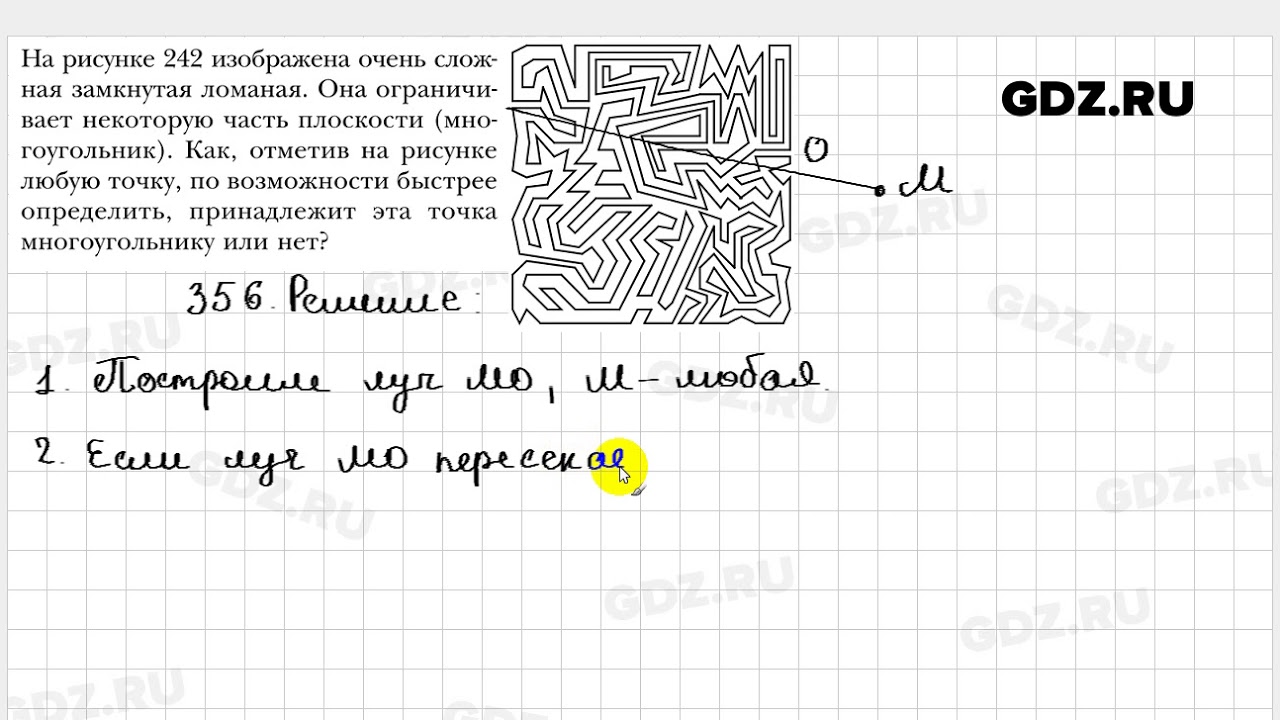 На рисунке 242 изображена очень слож-
ная замкнутая ломаная. Она ограничи-
вает некоторую часть плоскости (мно-
гоугольник). Как, отметив на рисунке
любую точку, по возможности быстрее
определить, принадлежит эта точка
многоугольнику или нет?
GDZ.RU
О
М
356. Решение:
1. Построим луч МО, М – любая.
2. Если луч МО пересекае
GDZ.RU
GDZ.RU
GDZ.RU
GDZ.RU
GDZ.RU
GDZ.RU
GDZ.RU
GDZ.RU
GDZ.RU
GDZ.RU
GDZ.RU